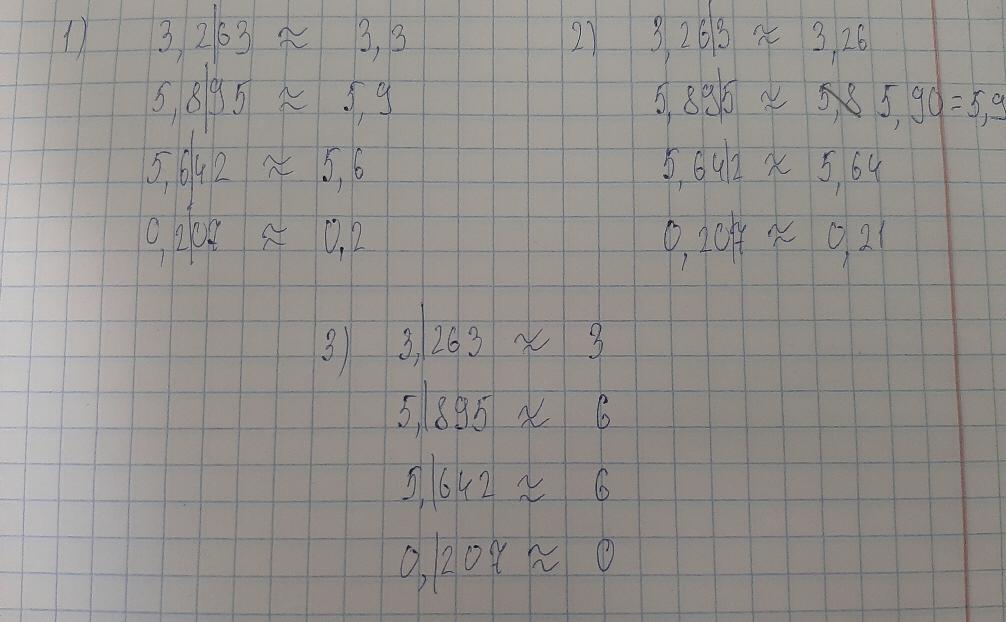 1) 3,2|63 ≈ 3,3
5,8|95 ≈ 5,9
5,6|42 ≈ 5,6
0,2|07 ≈ 0,2
2) 3,26|3 ≈ 3,26
5,89|5 ≈ 5,8 5,90 = 5,9
5,64|2 ≈ 5,64
0,20|7 ≈ 0,21
3) 3,|263 ≈ 3
5,|895 ≈ 6
5,|642 ≈ 6
0,|207 ≈ 0